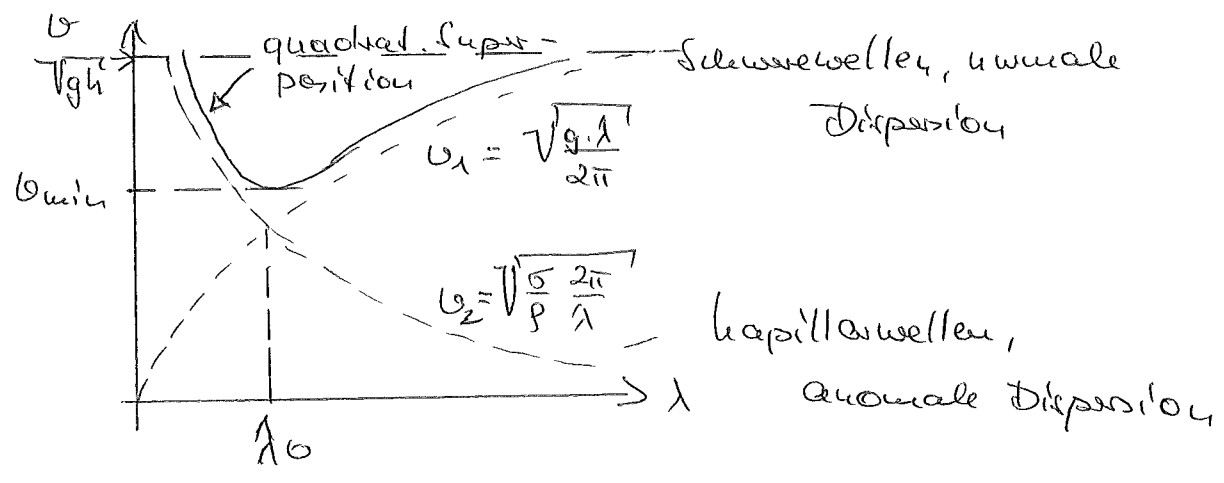 v
√gh
quadrat. Super-
position
Schwerewellen, normale
Dispersion
v₁ = √(g·λ/2π)
vmin
v₂ = √(σ/ρ 2π/λ)
Kapillarwellen,
anomale Dispersion
λ
λ₀